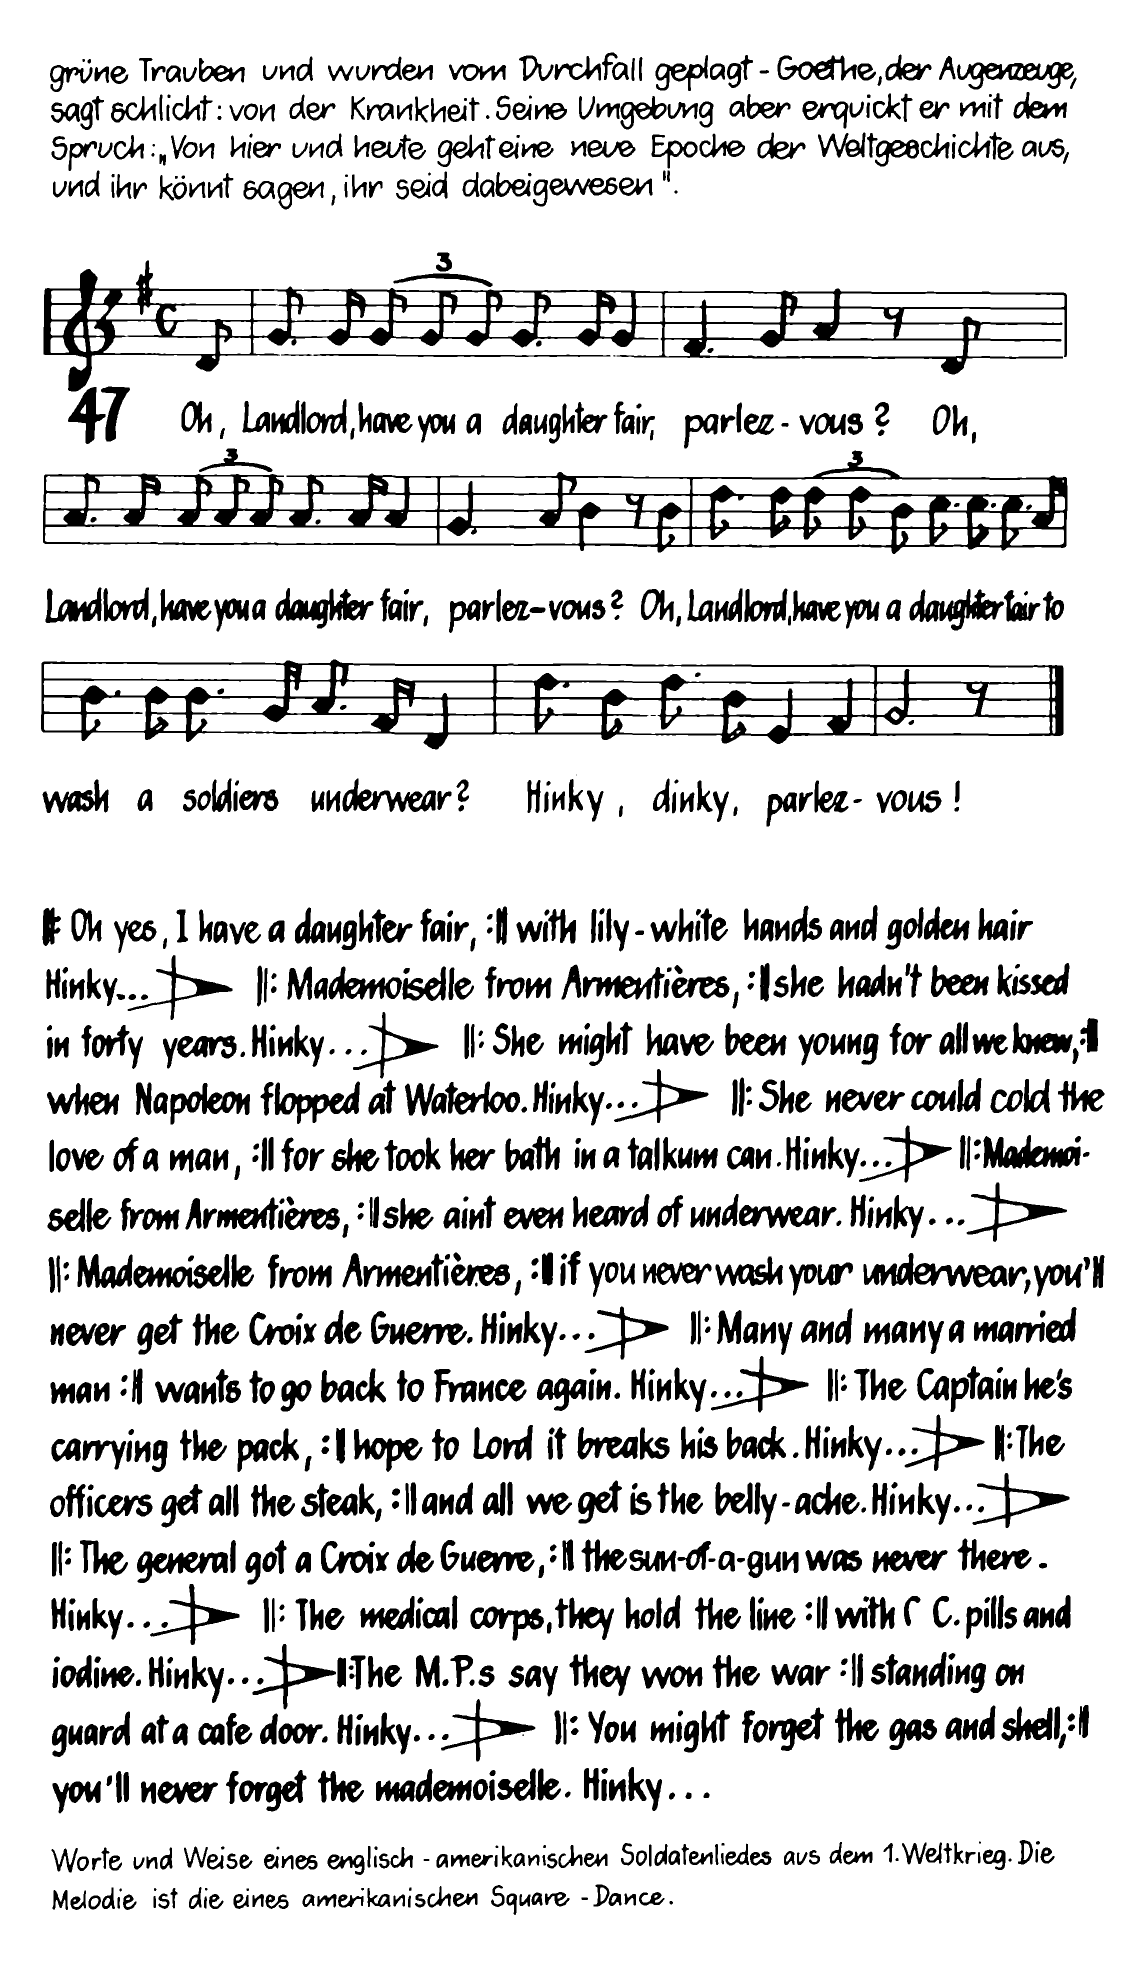 grüne Trauben und wurden vom Durchfall geplagt - Goethe, der Augenzeuge,
sagt schlicht: von der Krankheit. Seine Umgebung aber erquickt er mit dem
Spruch: „Von hier und heute geht eine neue Epoche der Weltgeschichte aus,
und ihr könnt sagen, ihr seid dabeigewesen".
3
47 Oh, Landlord, have you a daughter fair, parlez - vous? Oh,
3 3
Landlord, have you a daughter fair, parlez-vous? Oh, Landlord, have you a daughter fair to
wash a soldiers underwear? Hinky, dinky, parlez - vous!
||: Oh yes, I have a daughter fair, :|| with lily-white hands and golden hair
Hinky... ||: Mademoiselle from Armentières, :|| she hadn't been kissed
in forty years. Hinky... ||: She might have been young for all we knew, :||
when Napoleon flopped at Waterloo. Hinky... ||: She never could cold the
love of a man, :|| for she took her bath in a talkum can. Hinky... ||: Mademoi-
selle from Armentières, :|| she aint even heard of underwear. Hinky...
||: Mademoiselle from Armentières, :|| if you never wash your underwear, you'll
never get the Croix de Guerre. Hinky... ||: Many and many a married
man :|| wants to go back to France again. Hinky... ||: The Captain he's
carrying the pack, :|| hope to Lord it breaks his back. Hinky... ||: The
officers get all the steak, :|| and all we get is the belly-ache. Hinky...
||: The general got a Croix de Guerre, :|| the sun-of-a-gun was never there.
Hinky... ||: The medical corps, they hold the line :|| with C C. pills and
iodine. Hinky... ||: The M.P.s say they won the war :|| standing on
guard at a cafe door. Hinky... ||: You might forget the gas and shell, :||
you'll never forget the mademoiselle. Hinky...
Worte und Weise eines englisch - amerikanischen Soldatenliedes aus dem 1. Weltkrieg. Die
Melodie ist die eines amerikanischen Square - Dance.